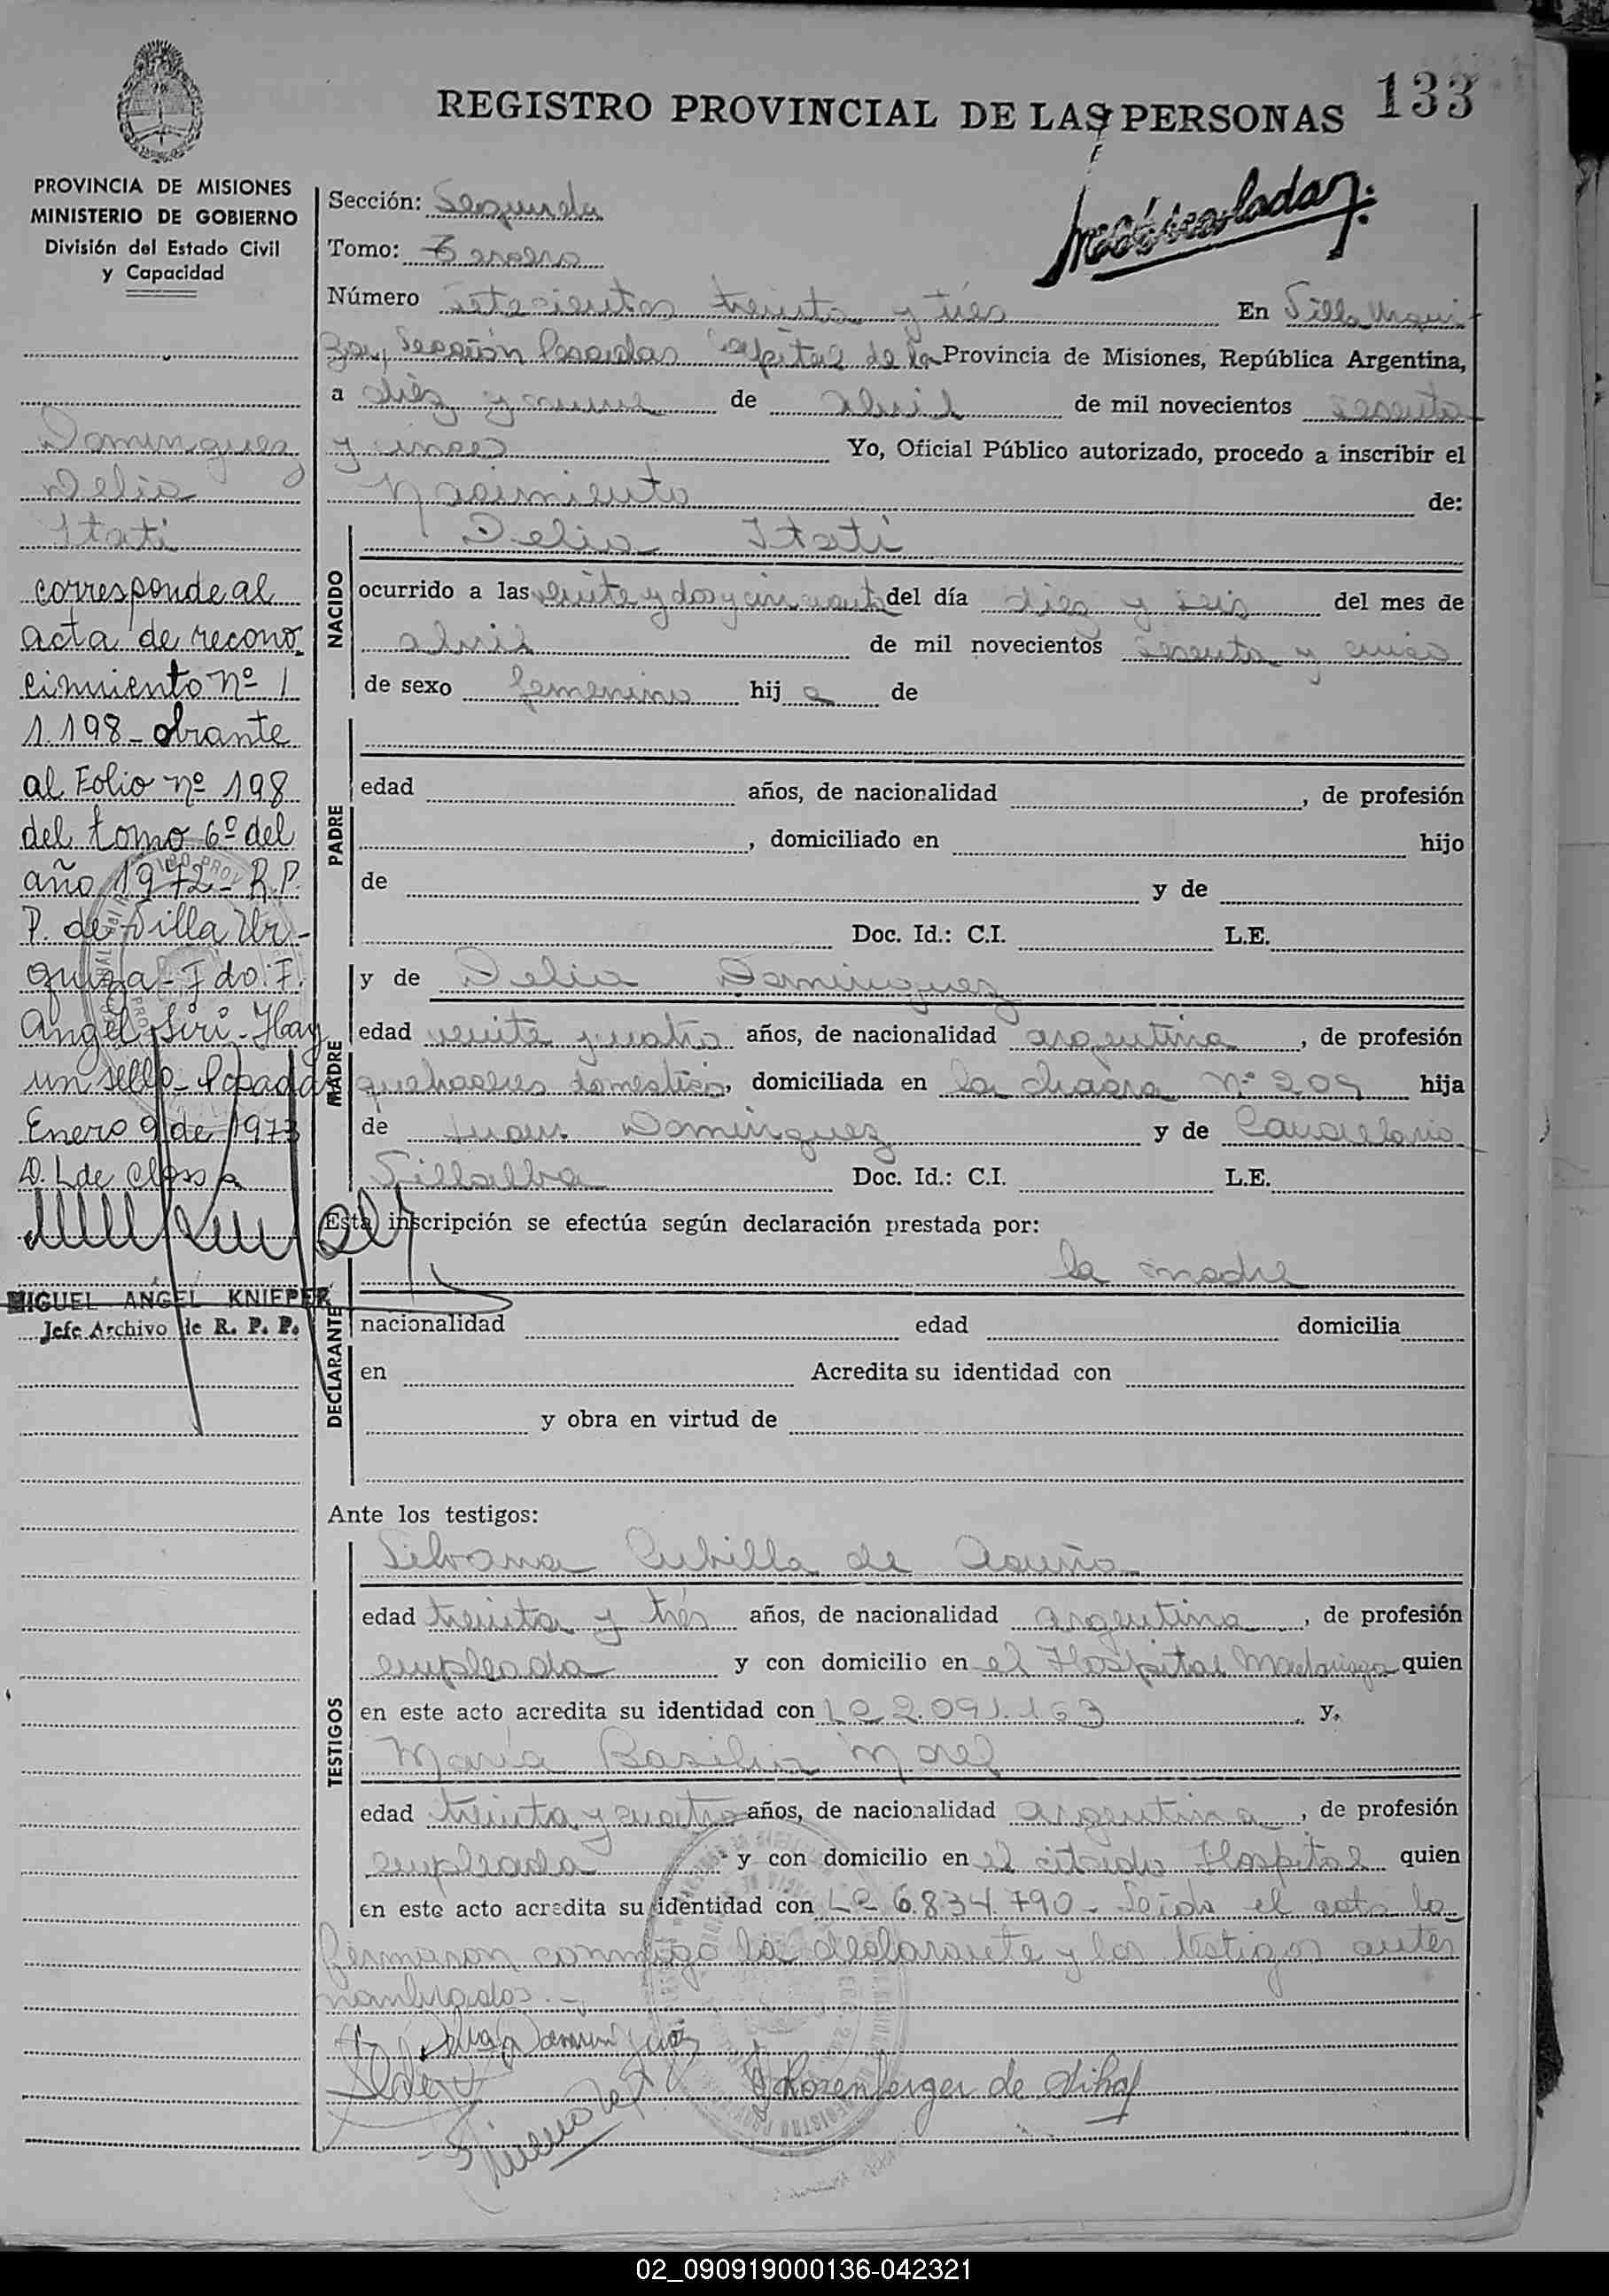 133
REGISTRO PROVINCIAL DE LAS PERSONAS
PROVINCIA DE MISIONES
MINISTERIO DE GOBIERNO
División del Estado Civil
y Capacidad
Dominguez
Delia
Itati
corresponde al
acta de recono
cimiento nº 1
1.198 - obrante
al Folio nº 198
del tomo 6º del
año 1972 - R.P.
P. de Villa Ur-
quiza - Fdo: F.
Angel Siri - Hay
un sello - Posadas
Enero 9 de 1973
MIGUEL ANGEL KNIEPER
Jefe Archivo de R. P. P.
Sección: Segunda
Tomo: Tercero
Número Setecientos treinta y tres En Villa Urqui
za, Sección Posadas Capital de la Provincia de Misiones, República Argentina,
a diez y nueve de abril de mil novecientos sesenta
y cinco Yo, Oficial Público autorizado, procedo a inscribir el
Nacimiento de:
NACIDO
Delia Itati
ocurrido a las veinte y dos y cincuenta del día diez y seis del mes de
abril de mil novecientos sesenta y cinco
de sexo femenino hij a de
PADRE
edad años, de nacionalidad , de profesión
, domiciliado en hijo
de y de
Doc. Id.: C.I. L.E.
MADRE
y de Delia Dominguez
edad veinte y cuatro años, de nacionalidad argentina , de profesión
quehaceres domestico, domiciliada en la chacra Nº 209 hija
de Juan Dominguez y de Candelaria
Villalba Doc. Id.: C.I. L.E.
Esta inscripción se efectúa según declaración prestada por:
la madre
DECLARANTE
nacionalidad edad domicilia
en Acredita su identidad con
y obra en virtud de
Ante los testigos:
TESTIGOS
Silvana Cubilla de Acuña
edad treinta y tres años, de nacionalidad argentina , de profesión
empleada y con domicilio en el Hospital Madariaga quien
en este acto acredita su identidad con LC 2.091.163 y,
María Basilia Morel
edad treinta y cuatro años, de nacionalidad argentina , de profesión
empleada y con domicilio en el citado Hospital quien
en este acto acredita su identidad con LC 6.834.790 - Leída el acta la
firmaron conmigo la declarante y los testigos antes
nombrados. -
Rosenberger de
02_090919000136-042321